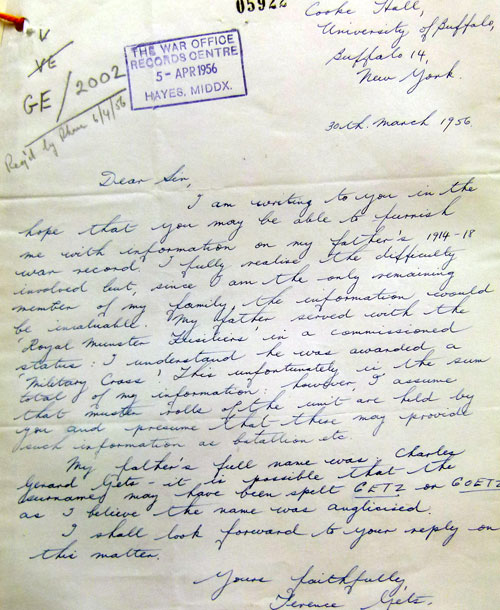 05922
Cooke Hall,
University of Buffalo,
Buffalo 14,
New York.
30th. March 1956.
V
VE
GE / 2002
Req'd by Phone 6/4/56
THE WAR OFFICE
RECORDS CENTRE
5 - APR 1956
HAYES, MIDDX.
Dear Sir,
I am writing to you in the
hope that you may be able to furnish
me with information on my father's 1914-18
war record. I fully realise the difficulty
involved but, since I am the only remaining
member of my family, the information would
be invaluable. My father served with the
Royal Munster Fusiliers in a commissioned
status: I understand he was awarded a
'Military Cross'. This unfortunately is the sum
total of my information: however, I assume
that muster rolls of the unit are held by
you and presume that these may provide
such information as batallion etc
My father's full name was Charles
Gerard Gets - it is possible that the
surname may have been spelt GETZ or GOETZ
as I believe the name was anglicised.
I shall look forward to your reply on
this matter.
Yours faithfully,
Terence Gets.